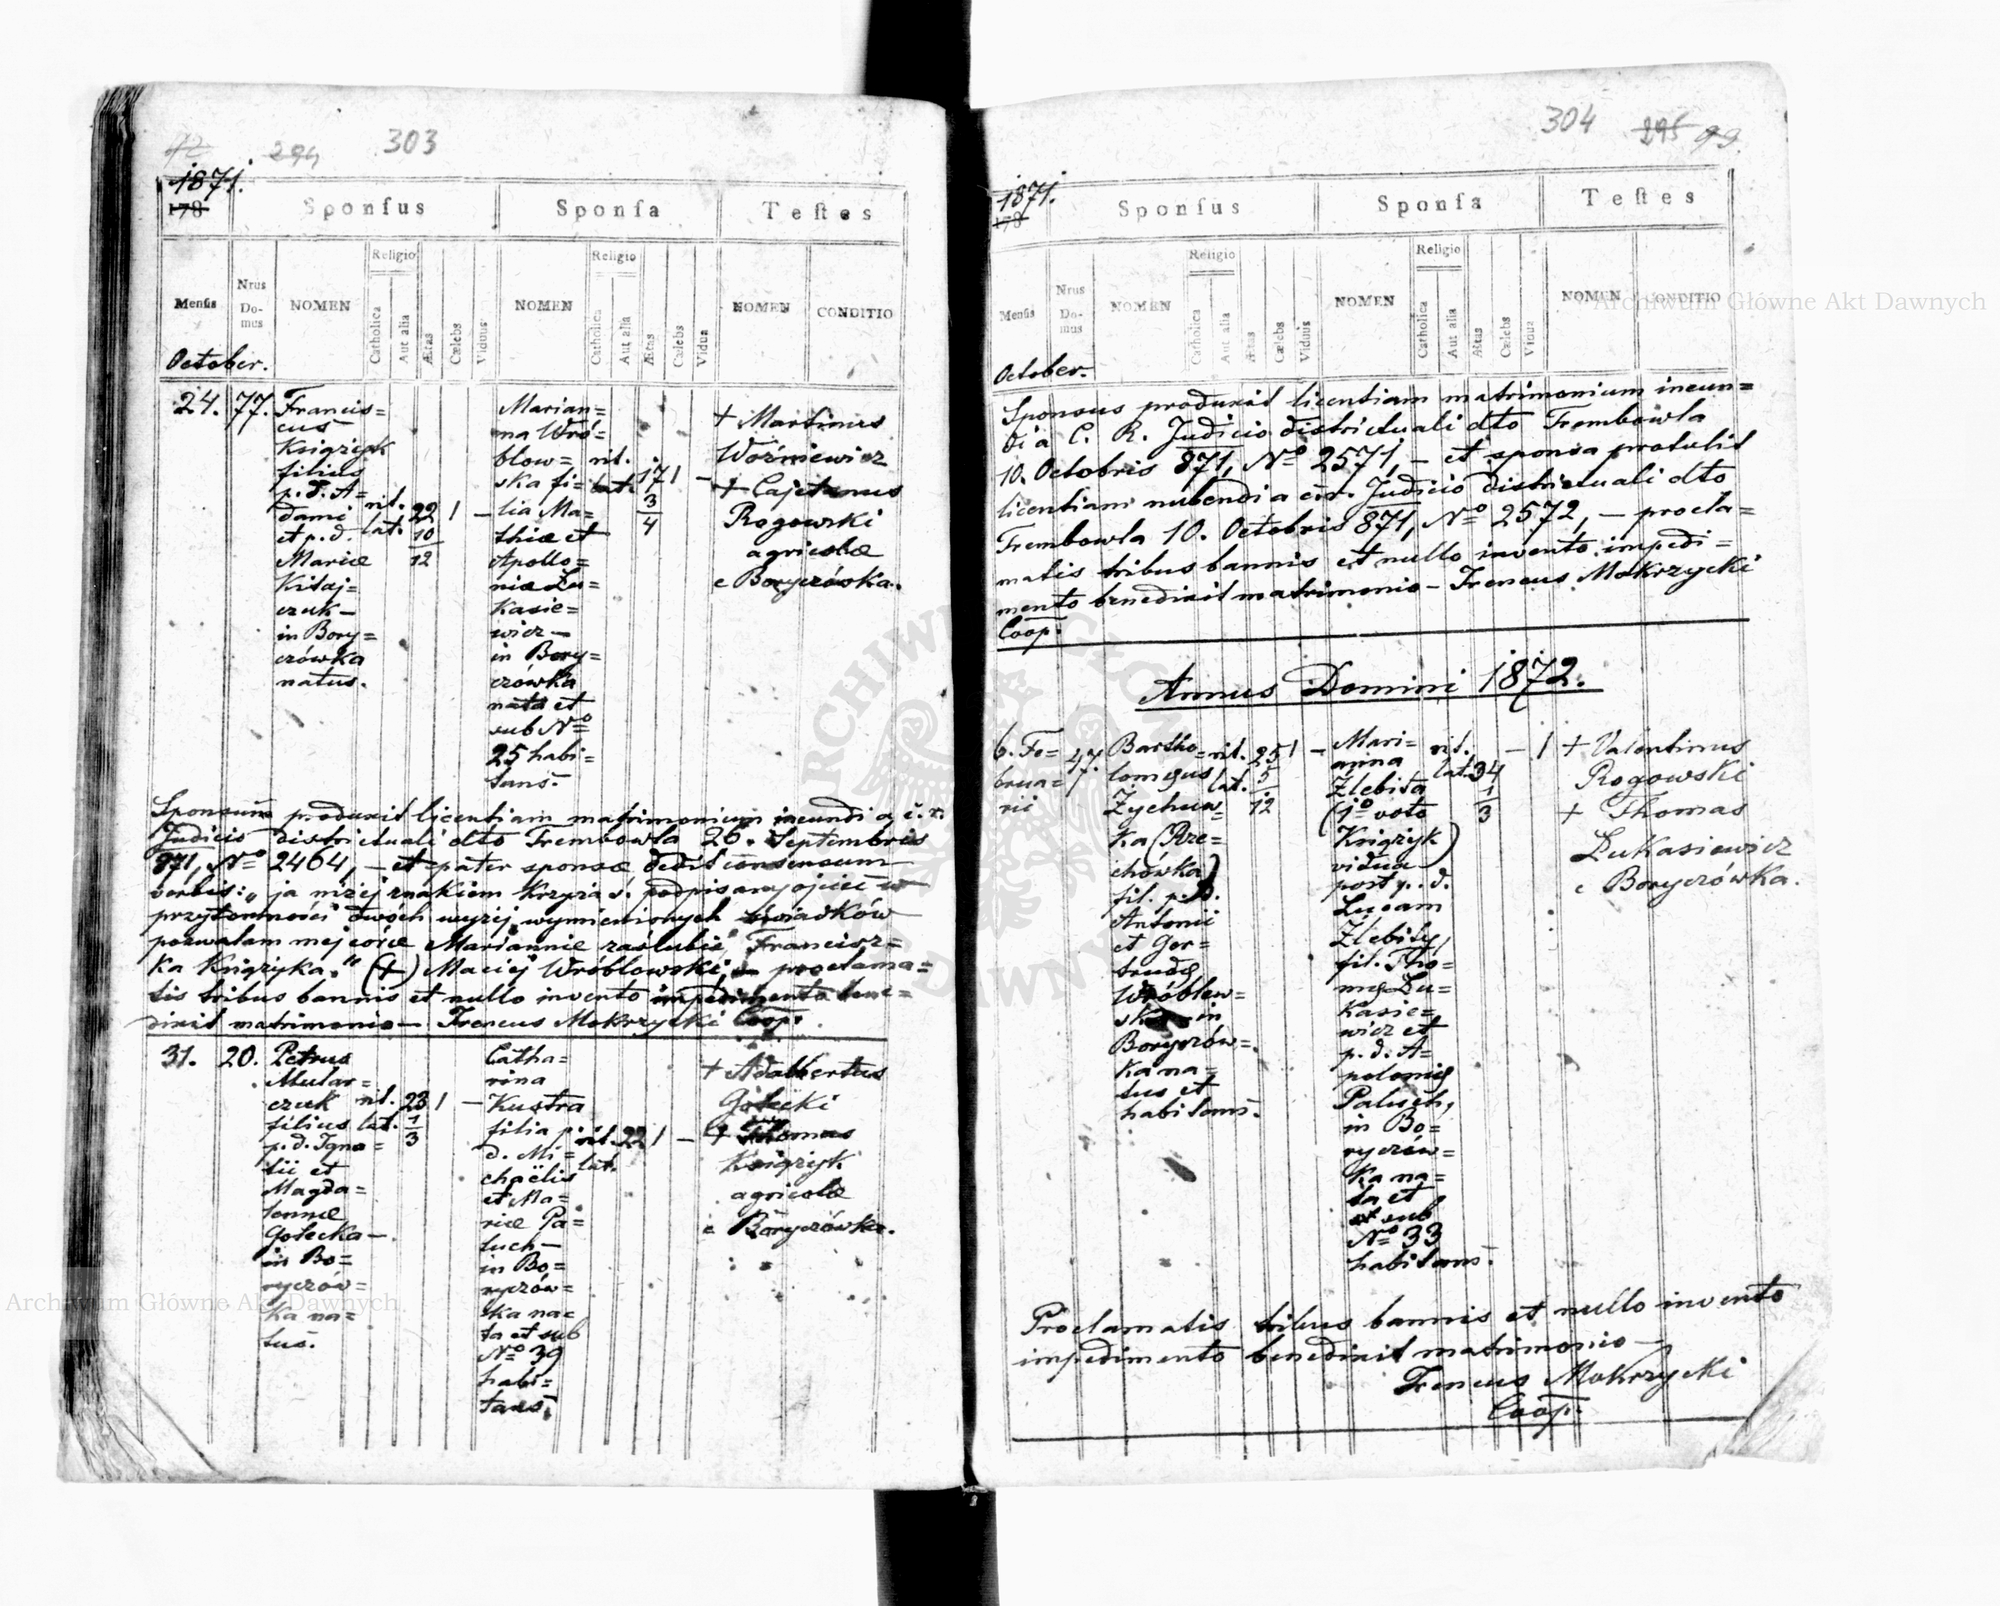 303
1871.
178
Sponsus
Sponsa
Testes
Mensis
Nrus Domus
NOMEN
Religio
Catholica
Aut alia
Ætas
Cælebs
Viduus
NOMEN
Religio
Catholica
Aut alia
Ætas
Cælebs
Vidua
NOMEN
CONDITIO
October.
24.
77.
Francis=
cus
Księżyk
filius
p. d. A=
dami
et p. d.
Mariæ
Kitaj=
czuk —
in Bory=
czówka
natus.
rit.
lat.
22
10
12
1
—
Marian=
na Wró=
blow=
ska fi=
lia Ma=
thiæ et
Apollo=
niæ Łu=
kasie=
wicz —
in Bory=
czówka
nata et
sub No
25 habi=
tans.
rit.
lat.
17
3
4
1
—
+ Martinus
Woźniewicz
+ Cajetanus
Rogowski
agricolæ
e Boryczówka.
Sponsus produxit licentiam matrimonium ineundi a c. r.
Judicio districtuali dto Trembowla 26. Septembris
871, No 2464, — et pater sponsæ dedit consensum
verbis: „ja niżej znakiem krzyża S. podpisany ojciec w
przytomności dwóch wyżej wymienionych świadków
pozwalam mej córce Mariannie zaślubić Francisz=
ka Księżyka." (+) Maciej Wróblowski, — proclama=
tis tribus bannis et nullo invento impedimento bene=
dixit matrimonio — Ireneus Mokrzycki Coop.
31.
20.
Petrus
Mular=
czuk
filius
p. d. Igna=
tii et
Magda=
lennæ
Gołecka —
in Bo=
ryczów=
ka na=
tus.
rit.
lat.
23
1
3
1
—
Catha=
rina
Kustra
filia p.
d. Mi=
chaëlis
et Ma=
riæ Pa=
luch —
in Bo=
ryczów=
ka na=
ta et sub
No 39
habi=
tans.
rit.
lat.
22
1
—
+ Adalbertus
Gołecki
+ Thomas
Księżyk
agricolæ
e Boryczówka.
304
295
99.
1871.
178
Sponsus
Sponsa
Testes
Mensis
Nrus Domus
NOMEN
Religio
Catholica
Aut alia
Ætas
Cælebs
Viduus
NOMEN
Religio
Catholica
Aut alia
Ætas
Cælebs
Vidua
NOMEN
CONDITIO
October.
Sponsus produxit licentiam matrimonium ineun=
di a C. R. Judicio districtuali dto Trembowla
10. Octobris 871, No 2571, — et sponsa protulit
licentiam nubendi a c. r. Judicio districtuali dto
Trembowla 10. Octobris 871, No 2572, — procla=
matis tribus bannis et nullo invento impedi=
mento benedixit matrimonio — Ireneus Mokrzycki
Coop.
Annus Domini 1872.
6. Fe=
brua=
rii
47.
Bartho=
lomeus
Żychow=
ka (Rze=
chówka)
fil. p. d.
Antonii
et Ger=
trudę
Wróblew=
ska in
Boryczów=
ka na=
tus et
habitans.
rit.
lat.
25
5
12
1
—
Mari=
anna
Zlebita
(1o voto
Księżyk)
vidua
post p. d.
Lucam
Zlebity
fil. Tho=
mę Łu=
kasie=
wicz et
p. d. A=
polonię
Paluch,
in Bo=
ryczów=
ka na=
ta et
et sub
No 33
habitans.
rit.
lat.
34
1
3
—
1
+ Valentinus
Rogowski
+ Thomas
Łukasiewicz
e Boryczówka.
Proclamatis tribus bannis et nullo invento
impedimento benedixit matrimonio —
Ireneus Mokrzycki
Coop.
Archiwum Główne Akt Dawnych
Archiwum Główne Akt Dawnych
ARCHIWUM GŁÓWNE AKT DAWNYCH